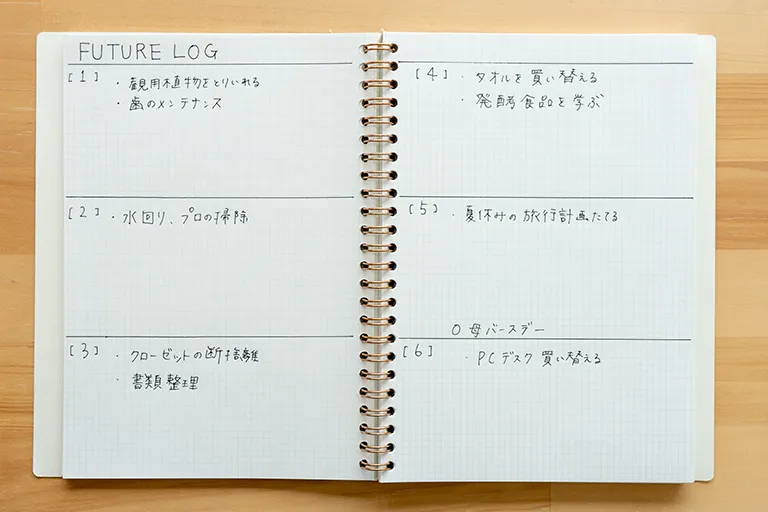 FUTURE LOG
[1] ・観用植物をとりいれる
・歯のメンテナンス
[2] ・水回り、プロの掃除
[3] ・クローゼットの断捨離
・書類整理
[4] ・タオルを買い替える
・発酵食品を学ぶ
[5] ・夏休みの旅行計画たてる
○母バースデー
[6] ・PCデスク買い替える